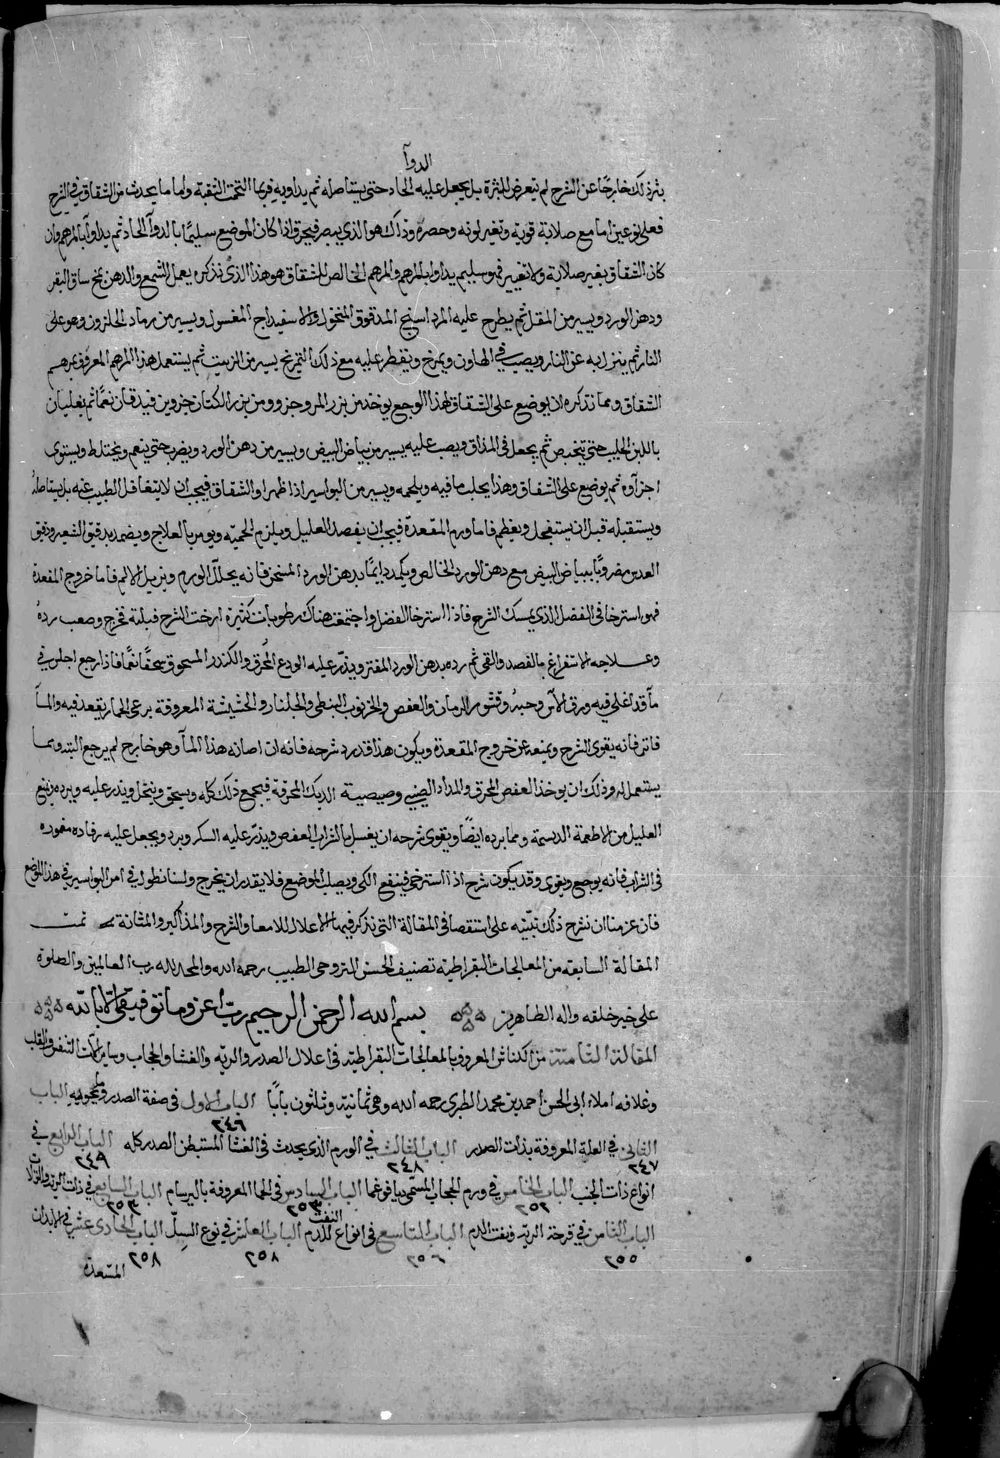 الدوآ
بثر ذلك خارجًا عن الشرج لم يتعرض للبثرة بل يجعل عليه الحاد حتى يستاصله ثم يداويه فربما التحمت الثقبة واما ما يحدث من الشقاق في الشرج
فعلى نوعين اما مع صلابة قوية وتغير لونه وحصره وذاك هو الذي اذا كان الموضع سليمًا بالدوآ الحاد ثم يداوا بالمرهم وان
كان الشقاق بغير صلابة ولا تغيير فهو سليم يداوا بالمرهم والمرهم الخالص للشقاق هو هذا الذي نذكره يعمل الشمع والدهن بمخ ساق البقر
ودهن الورد ويسير من المقل ثم يطرح عليه المرداسنج المدقوق المنخول والاسفيداج المغسول ويسير من رماد الحلزون وهو على
النار ثم ينزل به عن النار ويصب في الهاون ويمرخ ويقطر عليه مع ذلك التمريخ يسير من الزيت ثم يستعمل هذا المرهم المعروف بمرهم
الشقاق ومما نذكره لان يوضع على الشقاق لهذا الوجع يوخذ من بزر المرو جزو ومن بزر الكتان جزوين فيدقان نعمًا ثم يغليان
باللبن الحليب حتى ثم يجعل في المداق ويصب عليه يسير من بياض البيض ويسير من دهن الورد ويضرب حتى ينعم ويختلط ويستوى
اجزآوه ثم يوضع على الشقاق وهذا يحلب ما فيه ويلحمه ويسير من البواسير اذا ظهرا والشقاق فيجب ان لا يتغافل الطبيب عنه بل يستاصله
ويستقبله قبل ان يستفحل ويعظم فاما ورم المقعدة فيجب ان يفصد العليل ويلزم الحميه ويومر بالعلاج ويضمد بدقيق الشعير ودقيق
العدس مضروبًا ببياض البيض مع دهن الورد الخالص ويكمد دايمًا بدهن الورد المسخن فانه يحلل الورم ويزيل الالم فاما خروج المقعدة
فهو استرخا في الفضل الذي يمسك الشرج فاذا استرخا الفضل واجتمعت هناك رطوبات كثيرة ارخت الشرج قبلته فتخرج وصعب رده
وعلاجه الاستفراغ بالفصد والقى ثم رده بدهن الورد المفتر ويذر عليه الودع المحرق والكندر المسحوق سحقًا نعمًا فاذا رجع اجلس في
مآ قد اغلى فيه ورق الآس وحبه وقشور الرمان والعفص والخرنوب النبطى والجلنار والحشيشة المعروفة برعى الحمار يقعد فيه والمآ
فاتر فانه يقوى الشرج ويمنعه عن خروج المقعدة ويكون هذا قد رد شرجه فانه ان اصابه هذا المآ وهو خارج لم يرجع البتة ومما
يستعمل ذلك ان يوخذ العفص المحرق والمداد الصينى وصيصية الديك المحرقة فيجمع ذلك كله ويسحق وينخل ويذر عليه ويرد ويمنع
العليل من الاطعمة الدسمة ومما يرده ايضًا ويقوى شرجه ان يغسل بالشراب العفص ويذر عليه السكر ويرد ويجعل عليه رفاده مغموره
في الشراب فانه يوجع ويقوى وقد يكون شرج اذا استرخى فينفع الكى ويصلب الموضع فلا يقدر ان يخرج ولسنا نطول في امر البواسير في هذا الموضع
فان عزمنا ان نشرح ذلك تبينه على استقصا في المقالة التى نذكر فيها الاعلال للامعا والشرج والمذاكير والمثانة تمت
المقالة السابعة من المعالجات البقراطية تصنيف لحسن الطبيب رحمه الله والحمد لله رب العالمين والصلوة
على خير خلقه واله الطاهرين بسم الله الرحمن الرحيم رب اعن وما توفيقى الا بالله
المقالة الثامنة من الكناش المعروف بالمعالجات البقراطية في اعلال الصدر والرية والغشا والحجاب وساير آلات التنفس والقلب
وغلافه املاء ابى الحسن احمد بن محمد الطبرى رحمه الله وهى ثمانية وثلثون بابًا الباب الاول في صفة الصدر وما يحويه الباب
٢٤٦
الثانى في العلة المعروفة بذات الصدر الباب الثالث في الورم الذى يحدث في الغشا المستبطن الصدر كله الباب الرابع في
٢٤٧ ٢٤٨ ٢٤٩
انواع ذات الجنب الباب الخامس في ورم الحجاب المسمى ديافرغما الباب السادس في الحما المعروفة بالبرسام الباب السابع في ذات الرية والنزلات
٢٥٢ ٢٥٣ ٢٥٣
الباب الثامن في قرحة الرية ونفث الدم الباب التاسع في انواع النفث للدم الباب العاشر في نوع السل الباب الحادى عشر في الابدان
٢٥٥ ٢٥٦ ٢٥٨ ٢٥٨
المستعدة